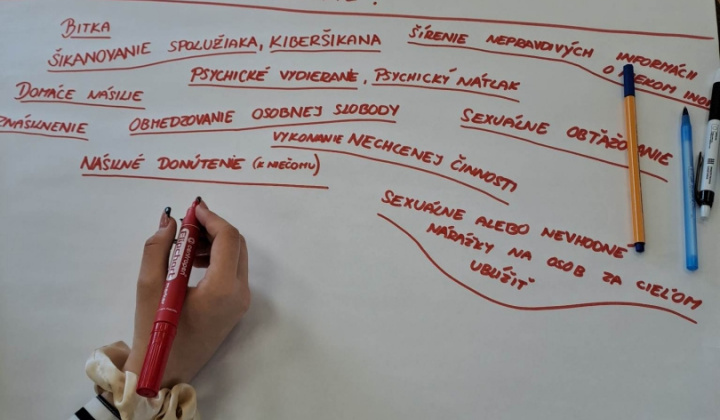 BITKA
ŠIKANOVANIE SPOLUŽIAKA, KIBERŠIKANA
ŠÍRENIE NEPRAVDIVÝCH INFORMÁCII
O NIEKOM
PSYCHICKÉ VYDIERANIE, PSYCHICKÝ NÁTLAK
DOMÁCE NÁSILIE
OBMEDZOVANIE OSOBNEJ SLOBODY
SEXUÁLNE OBŤAŽOVANIE
VYKONANIE NECHCENEJ ČINNOSTI
NÁSILNÉ DONÚTENIE (K NIEČOMU)
SEXUÁLNE ALEBO NEVHODNÉ
NARÁŽKY NA OSOB ZA CIEĽOM
UBLÍŽIŤ
flipchart